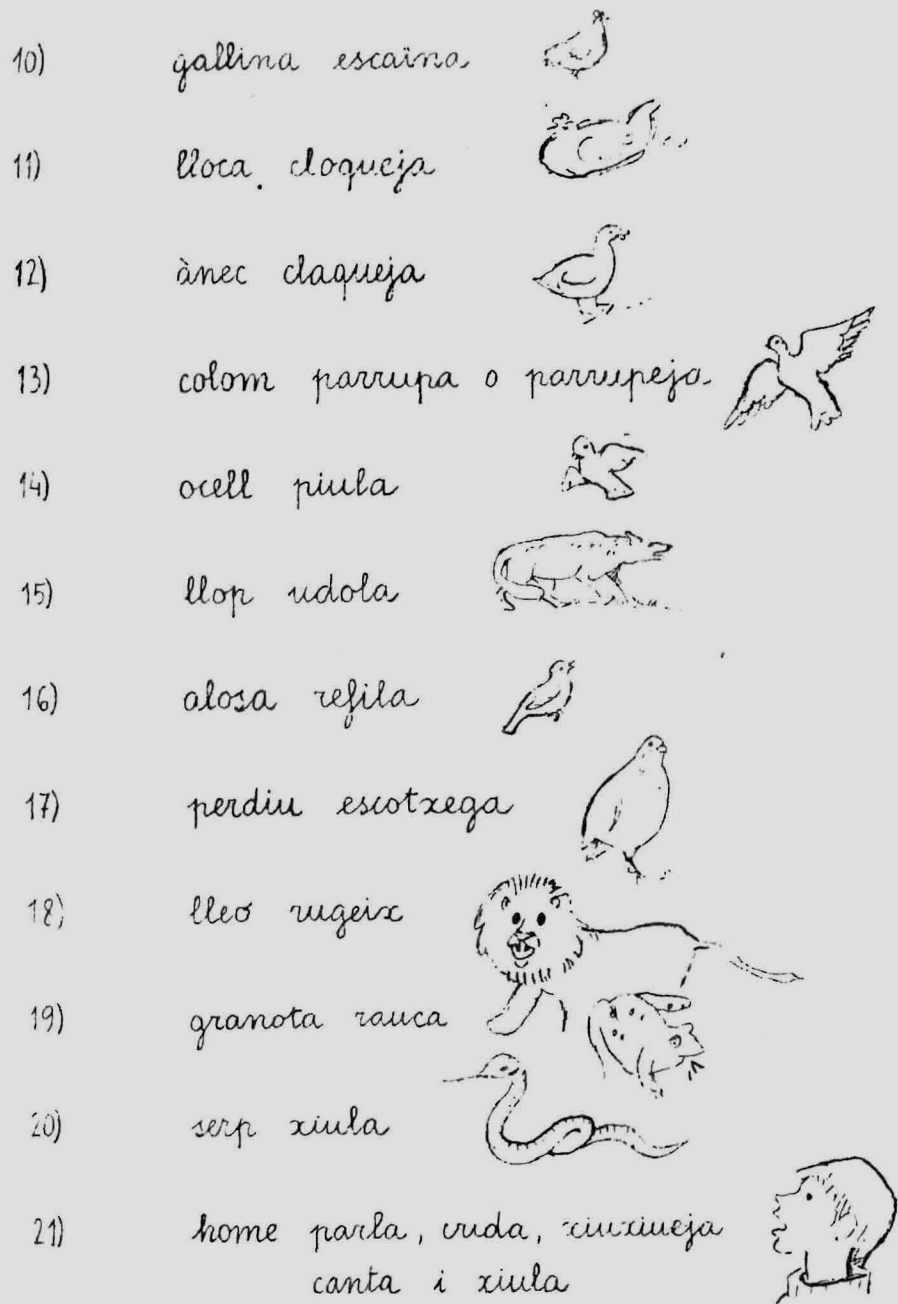 10) gallina escaina
11) lloca. cloqueja
12) ànec claqueja
13) colom parrupa o parrupeja
14) ocell piula
15) llop udola
16) alosa refila
17) perdiu escotxega
18) lleó rugeix
19) granota rauca
20) serp xiula
21) home parla, cuda, xiuxiueja
canta i xiula